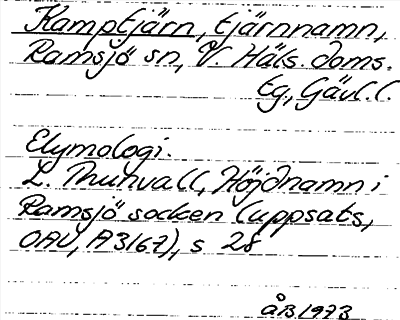 Kamptjärn, tjärnnamn,
Ramsjö sn, V. Häls. doms.
tg, Gävl. l.
Etymologi.
L. Thunvall, Höjdnamn i
Ramsjö socken (uppsats,
OAU, A3167), s 28
ÅB 1973